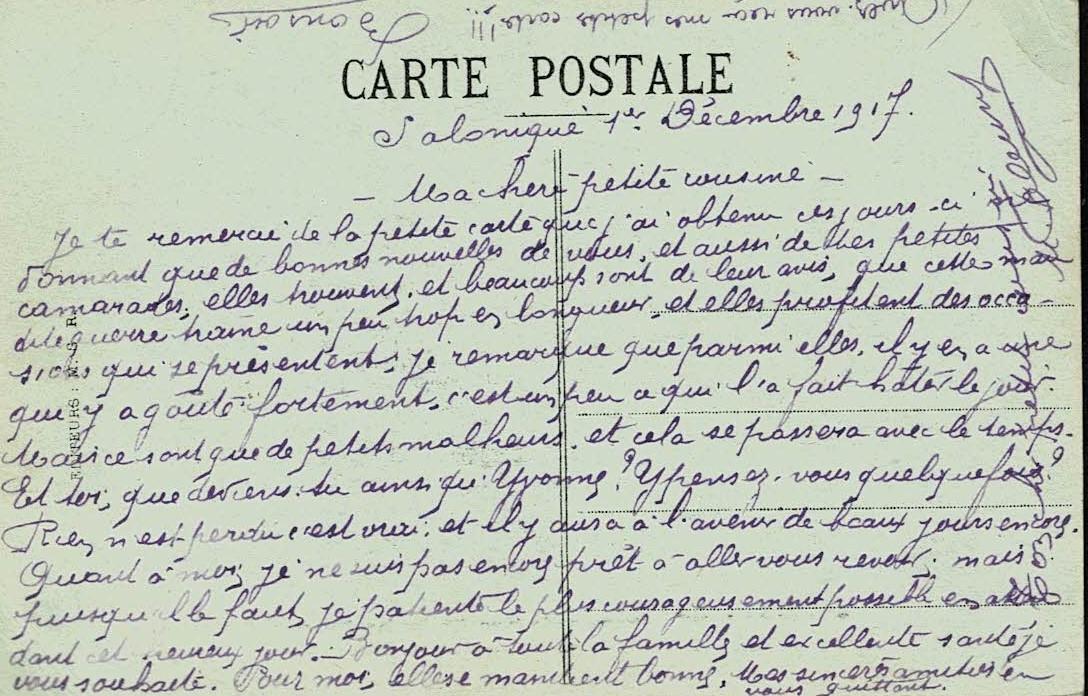 CARTE POSTALE
Salonique 1er Décembre 1917.
- Ma chere petite cousine -
Je te remercie de la petite carte que j'ai obtenu ces jours-ci
donnant que de bonnes nouvelles de vous, et aussi de tes petites
camarades, elles trouvent, et beaucoup sont de leur avis, que cette mau
dite guerre traine un peu trop en longueur, et elles profitent des occa-
sions qui se présentent, je remarque que parmi elles, il y en a une
qui y a goûté fortement, c'est un peu ce qui l'a fait hâter le jour.
Mais ce sont que de petits malheurs, et cela se passera avec le temps.
Et toi, que deviens-tu ainsi qu'Yvonne? Y pensez-vous quelquefois?
Rien n'est perdu c'est vrai, et il y aura à l'avenir de beaux jours encore.
Quant à moi, je ne suis pas encore prêt à aller vous revoir, mais
puisqu'il le faut, je patiente le plus courageusement possible en atten
dant cet heureux jour. Bonjour à toute la famille et excellente santé je
vous souhaite. Pour moi, elle se maintient bonne, Mes sincères amitiés en
vous quittant.
vous mes petites carte!!!
EDITEURS